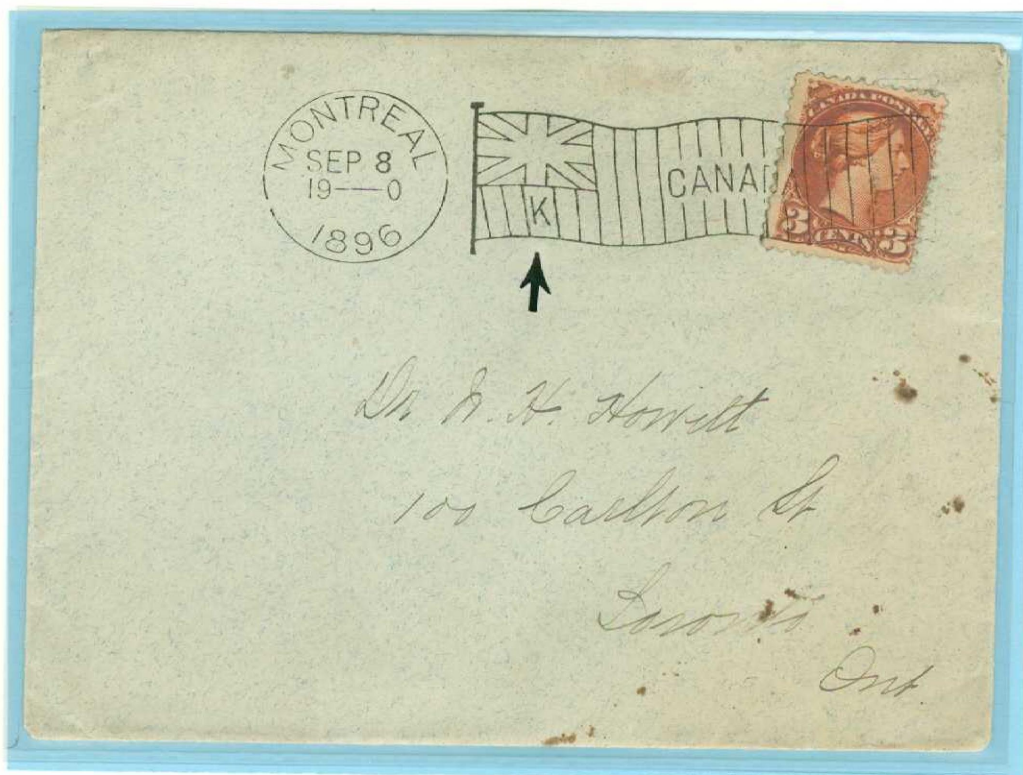 MONTREAL
SEP 8
19—0
1896
K
CANADA
CANADA POSTAGE
3 CENTS 3
Dr N. H. Howitt
100 Carlton St
Toronto
Ont